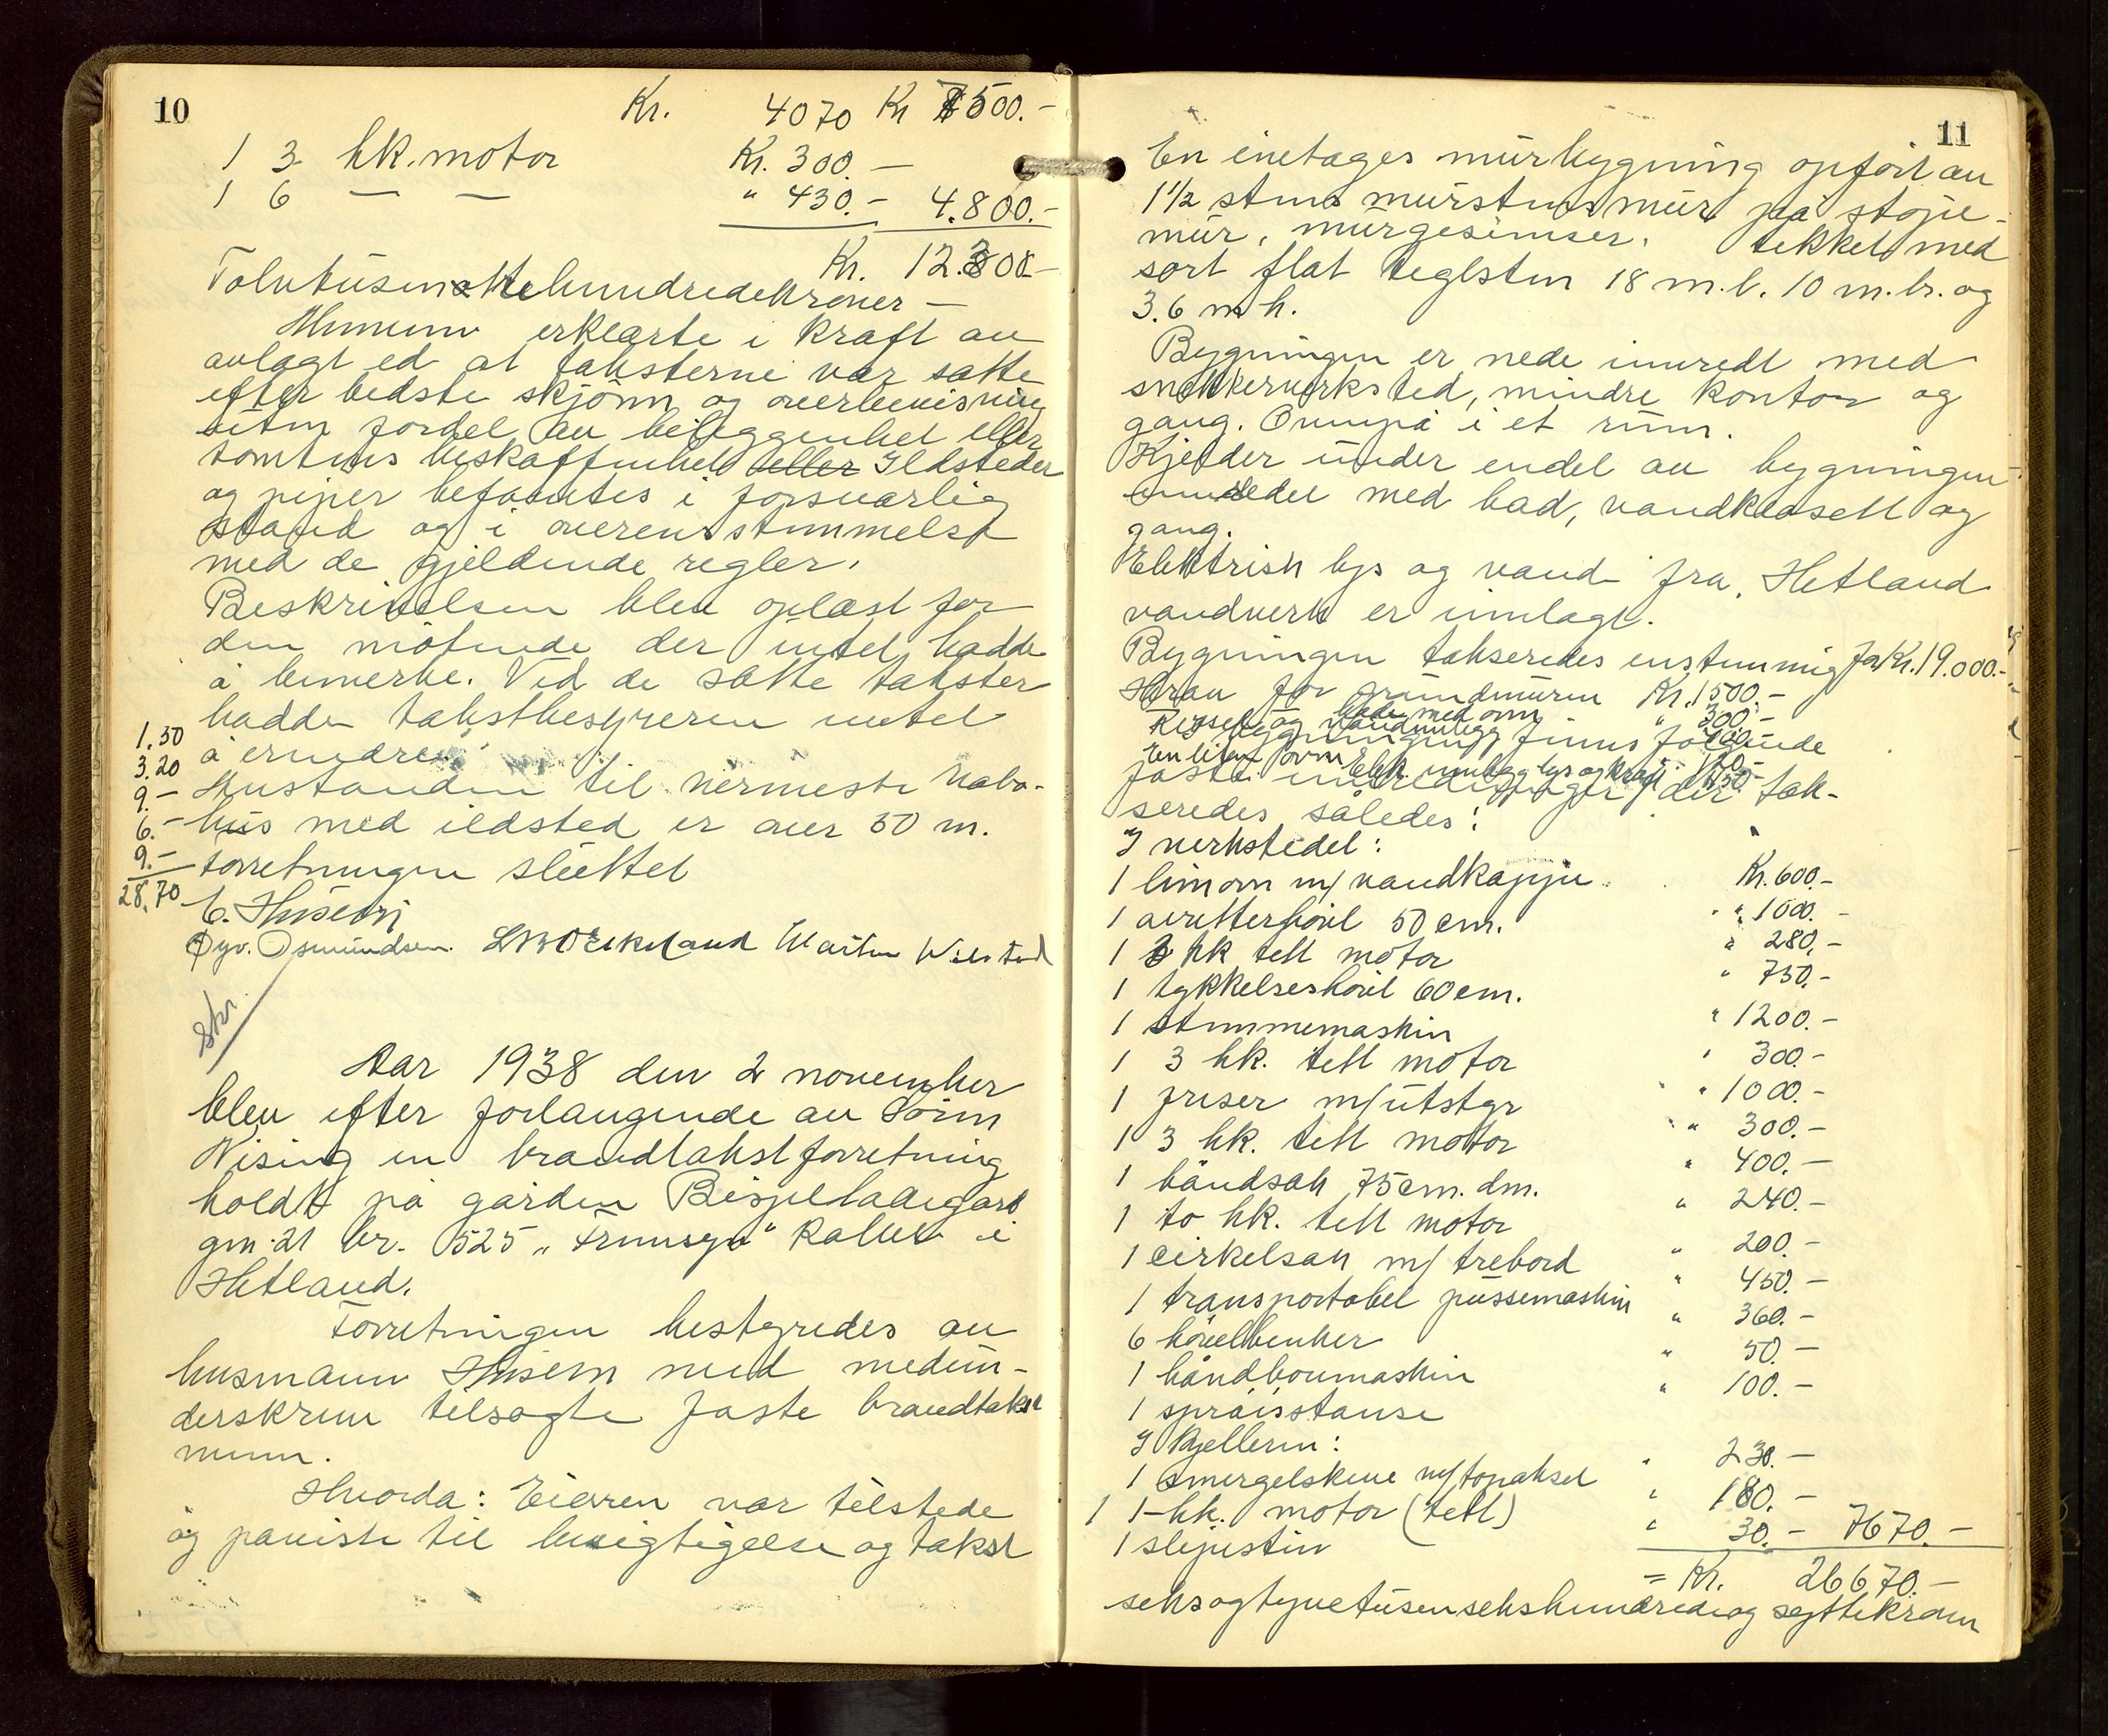 10
Kr. 4070 Kr 7500.-
1 3 hk. motor Kr. 300.-
1 6 — — " 430.- 4.800.-
Kr. 12.300.-
Tolvtusen hundredekroner —
Mennene erklærte i kraft av
avlagt ed at taksterne var satte
efter bedste skjønn og overbevisning
uten fordel av beliggenhet eller
tomtens beskaffenhet eller Ildsteder
og piper befantes i forsvarlig
stand og i overensstemmelse
med de gjeldende regler.
Beskrivelsen blev oplæst for
den møtende der intet hadde
å bemerke. Ved de satte takster
hadde takstbestyreren intet
å erindre.
Avstanden til nermeste nabo-
hus med ildsted er over 50 m.
Forretningen sluttet
1.50
3.20
9.-
6.-
9.-
28.70
E. Husem
Øyv. Osmundsen. Martin
Skr.
Aar 1938 den 2 november
blev efter forlangende av Sørin
Vising en brandtakstforretning
holdt på gården Bispeladegård
gn. 21 br. 525 " " kallet i
Hetland.
Forretningen bestyredes av
lensmann Husem med medun-
derskrevne tilsagte faste brandtakst
menn.
Hvorda: Eieren var tilstede
og paaviste til besigtigelse og takst
11
En enetages murbygning opført av
1 1/2 stens murstensmur på støpe-
mur, murgesimser. tekket med
sort flat teglsten 18 m.l. 10 m.br. og
3.6 m h.
Bygningen er nede innredt med
snekkerverksted, mindre kontor og
gang. Ovenpå i et rum.
Kjelder under endel av bygningen
innredet med bad, vandklosett og
gang.
Elektrisk lys og vand fra Hetland
vandverk er innlagt.
Bygningen takseredes enstemmig for Kr. 19.000.-
Herav for grundmuren Kr. 1500.-
bade med ovn " 300.-
og vandinnlegg
I bygningen finns følgende
En liten ovn
Elek. innlegg lys og kraft 450.-
faste innredninger der tak-
seredes således:
I verkstedet:
1 limovn m/ vandkappe Kr. 600.-
1 avretterhøvel 50 cm. " 1000.-
1 3 hk tett motor " 280.-
1 tykkelseshøvel 60 cm. " 750.-
1 stemmemaskin " 1200.-
1 3 hk. tett motor " 300.-
1 freser m/utstyr " 1000.-
1 3 hk. tett motor " 300.-
1 båndsak 75 cm. dm. " 400.-
1 to hk. tett motor " 240.-
1 cirkelsak m/ trebord " 200.-
1 transportabel pussemaskin " 450.-
6 høvelbenker " 360.-
1 håndboumaskin " 50.-
1 " 100.-
I Kjelleren:
1 smergelskive m/topaksel " 230.-
1 1-hk. motor (tett) " 180.-
1 slipestein " 30.- 7670.-
= Kr. 26670.-
seksogtyvetusensekshundredeog syttikroner